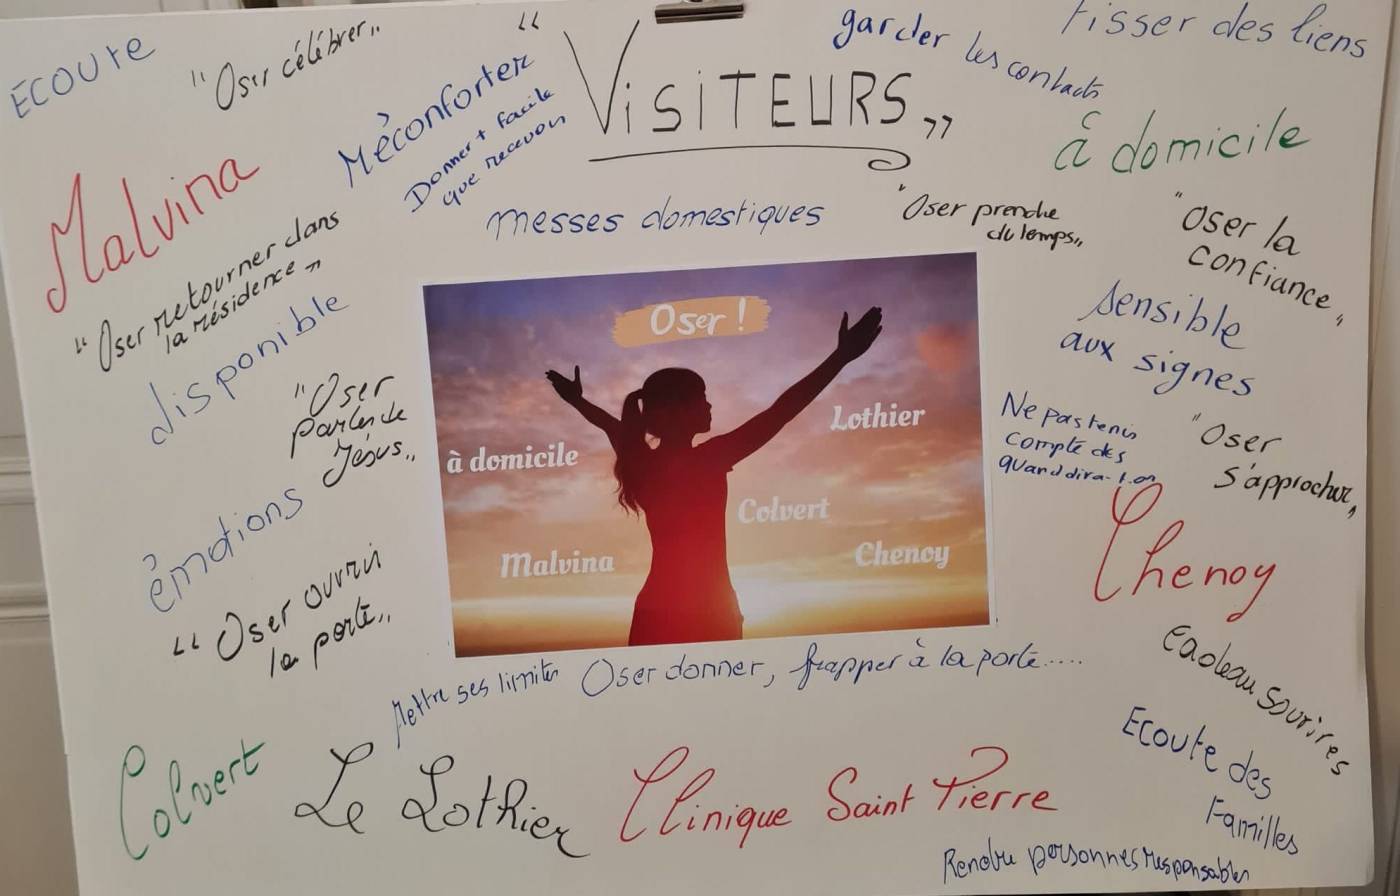 ECOUTE
"Oser célébrer"
Réconforter
Donner + facile
que recevoir
"VISITEURS"
garder les contacts
Tisser des liens
à domicile
Malvina
messes domestiques
"Oser prendre
du temps"
"Oser la
confiance"
"Oser retourner dans
la résidence"
disponible
sensible
aux signes
"Oser
parler de
Jésus"
Oser !
à domicile
Lothier
Colvert
Malvina
Chenoy
Ne pas tenir
compte des
quand dira-t-on
"Oser
s'approcher"
émotions
Chenoy
"Oser ouvrir
la porte"
Cadeau sourires
Mettre ses limites
Oser donner, frapper à la porte....
Ecoute des
Familles
Colvert
Le Lothier
Clinique Saint Pierre
Rendre personnes responsables